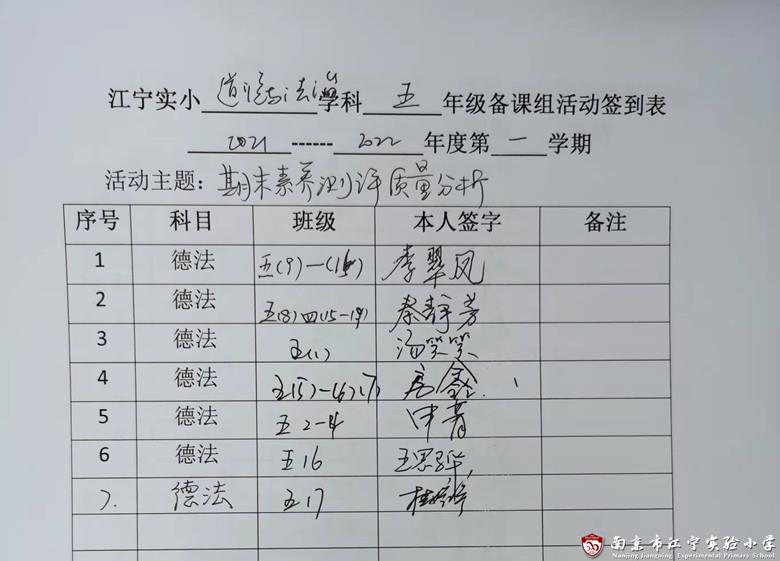 江宁实小 道德与法治 学科 五 年级备课组活动签到表
2021 ------ 2022 年度第 一 学期
活动主题：期末素养测评质量分析
序号 科目 班级 本人签字 备注
1 德法 五(9)—(15) 李翠凤
2 德法 五(8)四(15-19) 秦静芳
3 德法 五(1) 汤笑笑
4 德法 五(5)-(6)(7) 高鑫
5 德法 五2-4 申青
6 德法 五16 王思华
7. 德法 五17
南京市江宁实验小学
Nanjing Jiangning Experimental Primary School